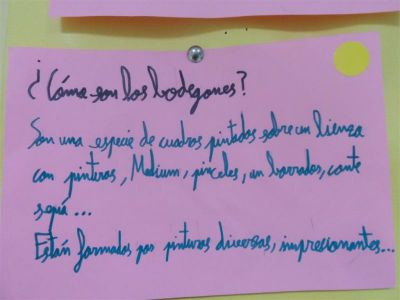 ¿Cómo son los bodegones?
Son una especie de cuadros pintados sobre un lienzo
con pinturas, Medium, pinceles, un borrados, conte
sepia...
Están formados por pinturas diversas, impresionantes...